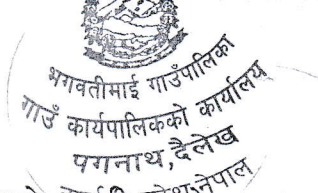 भगवतीमाई गाउँपालिका
गाउँ कार्यपालिकको कार्यालय
पगनाथ, दैलेख
नेपाल